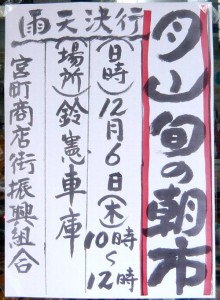 月山旬の朝市
雨天決行
(日時)12月6日(木)
10時～12時
(場所)鈴憲車庫
宮町商店街振興組合